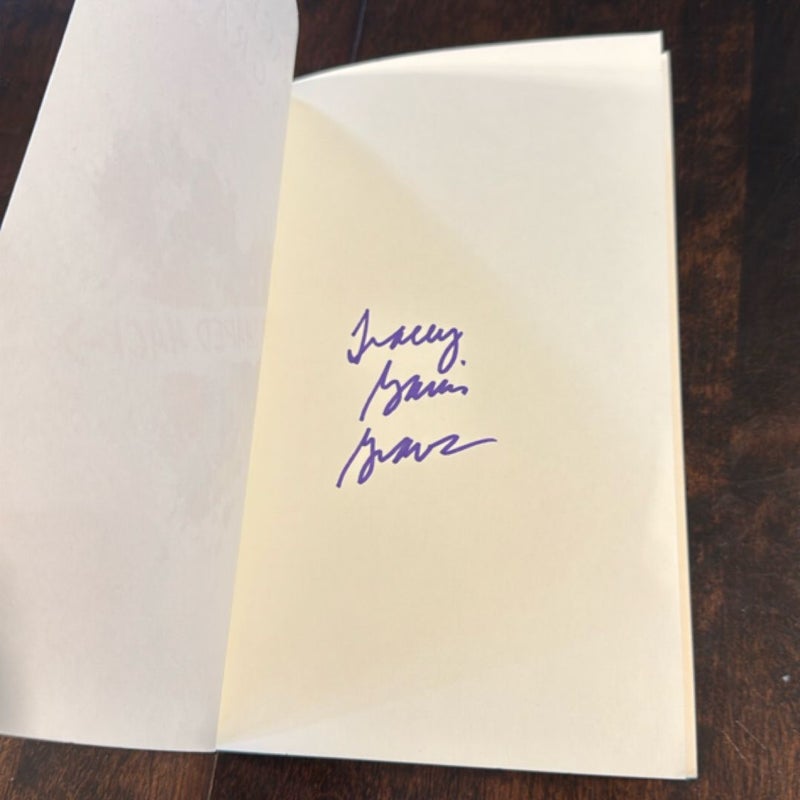 Tracey
Garvis
Graves